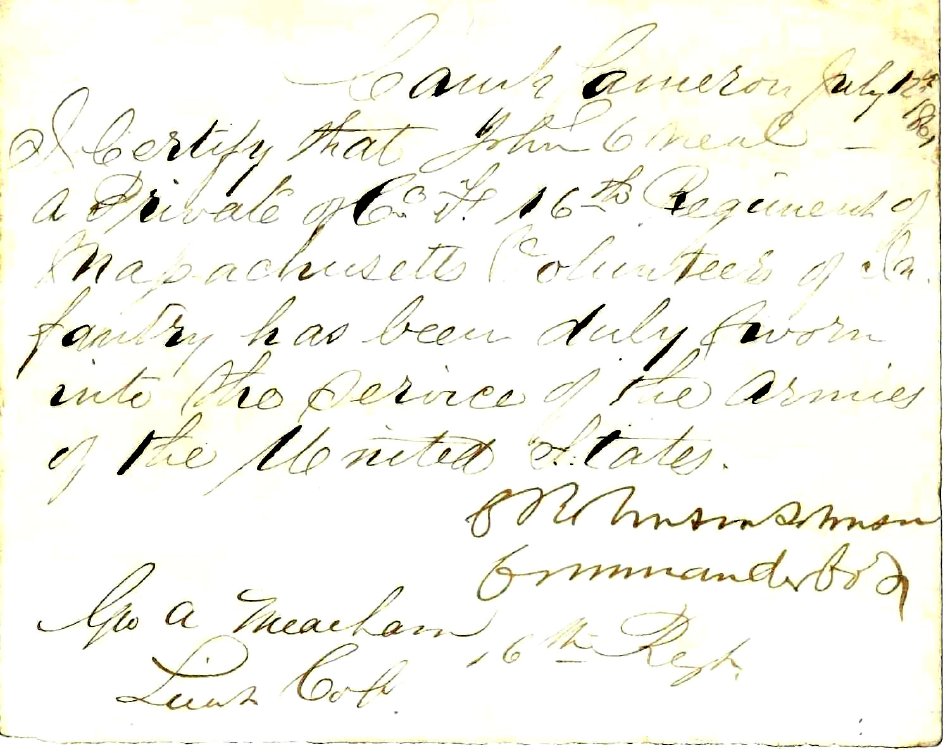 Camp Cameron July 12th 1861
I Certify that John O Neal –
a Private of Co. F. 16th Regiment of
Massachusetts Volunteers of In.
fantry has been duly Sworn
into the Service of the Armies
of the United States.
Commander Co
Geo A Meacham
Lieut Col 16th Regt.